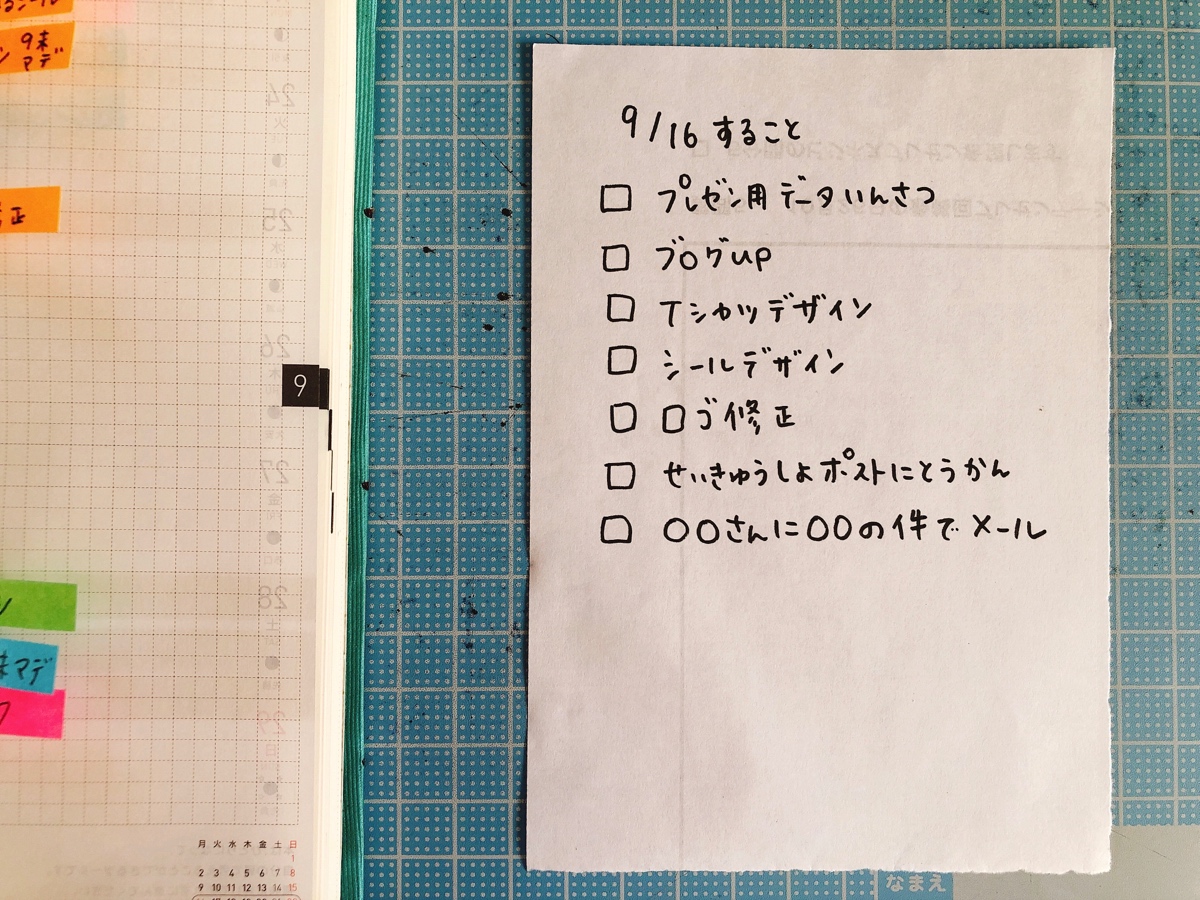 9末
マデ
正
9
末マデ
月 火 水 木 金 土 日
1
2 3 4 5 6 7 8
9 10 11 12 13 14 15
9/16 すること
□ プレゼン用データいんさつ
□ ブログup
□ Tシャツデザイン
□ シールデザイン
□ ロゴ修正
□ せいきゅうしょポストにとうかん
□ 〇〇さんに〇〇の件でメール
なまえ